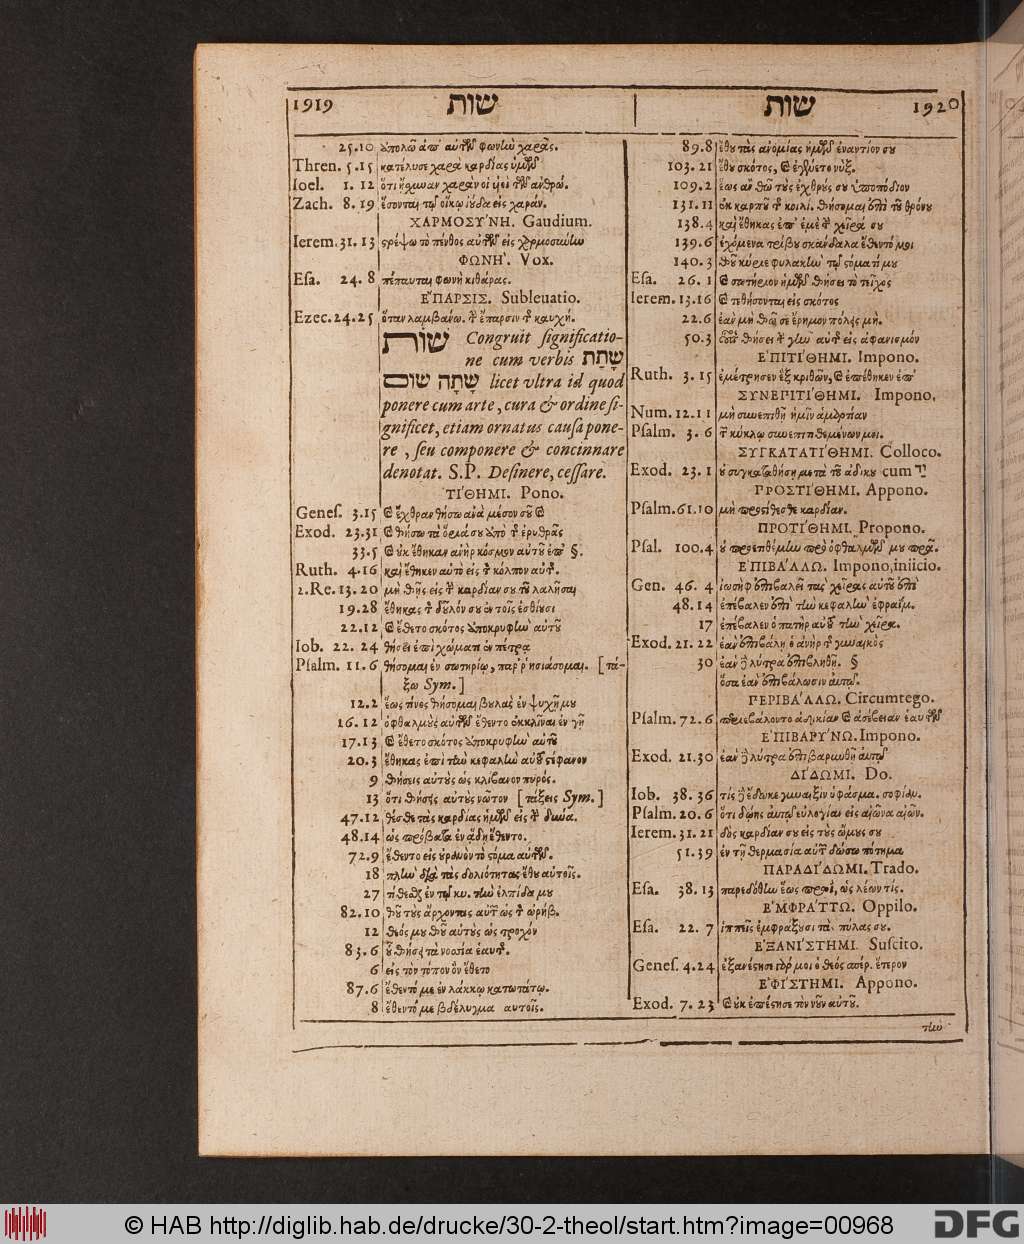 1919 שות
25.10 ἀπολῶ ἀπ' αὐτῶν φωνὴν χαρᾶς.
Thren. 5.15 κατέλυσε χαρὰ καρδίας ἡμῶν
Ioel. 1.12 ὅτι ᾔσχυναν χαρὰν οἱ υἱοὶ τῶν ἀνθρώ.
Zach. 8.19 ἔσονται τῷ οἴκῳ ἰούδα εἰς χαράν.
ΧΑΡΜΟΣΥ΄ΝΗ. Gaudium.
Ierem. 31.13 στρέψω τὸ πένθος αὐτῶν εἰς χαρμοσύνην
ΦΩΝΗ΄. Vox.
Esa. 24.8 πέπαυται φωνὴ κιθάρας.
ἜΠΑΡΣΙΣ. Subleuatio.
Ezec. 24.25 ὅταν λαμβάνω. τὴν ἔπαρσιν τῆς καυχή.
שׁוֹת Congruit significatio-
ne cum verbis שָׁתַת
שׁוּם שָׁתָה licet vltra id quod
ponere cum arte, cura & ordine si-
gnificet, etiam ornatus causa pone-
re, seu componere & concinnare
denotat. S.P. Desinere, cessare.
ΤΙ΄ΘΗΜΙ. Pono.
Genes. 3.15 καὶ ἔχθραν θήσω ἀνὰ μέσον σοῦ καὶ
Exod. 23.31 καὶ θήσω τὰ ὅριά σου ἀπὸ τῆς ἐρυθρᾶς
33.5 καὶ οὐκ ἔθηκαν ἀνὴρ κόσμον αὐτοῦ ἐπ' §.
Ruth. 4.16 καὶ ἔθηκεν αὐτὸ εἰς τὸν κόλπον αὐτῆς.
2.Re. 13.20 μὴ θῇς εἰς τὴν καρδίαν σου τοῦ λαλῆσαι
19.28 ἔθηκας τὸν δοῦλόν σου ἐν τοῖς ἐσθίουσι
22.12 καὶ ἔθετο σκότος ἀποκρυφὴν αὐτοῦ
Iob. 22.24 θήσει ἐπὶ χώματι ἐν πέτρᾳ
Psalm. 11.6 θήσομαι ἐν σωτηρίῳ, παῤῥησιάσομαι. [τά-
ξω Sym.]
12.2 ἕως τίνος θήσομαι βουλὰς ἐν ψυχῇ μου
16.12 ὀφθαλμοὺς αὐτῶν ἔθεντο ἐκκλῖναι ἐν γῇ
17.13 καὶ ἔθετο σκότος ἀποκρυφὴν αὐτοῦ
20.3 ἔθηκας ἐπὶ τὴν κεφαλὴν αὐτοῦ στέφανον
9 θήσεις αὐτοὺς ὡς κλίβανον πυρός.
13 ὅτι θήσεις αὐτοὺς νῶτον [τάξεις Sym.]
47.12 θέσθε τὰς καρδίας ὑμῶν εἰς τὴν δύνα.
48.14 ὡς πρόβατα ἐν ᾅδῃ ἔθεντο.
72.9 ἔθεντο εἰς οὐρανὸν τὸ στόμα αὐτῶν.
18 πλὴν διὰ τὰς δολιότητας ἔθου αὐτοῖς.
27 τίθεσθαι ἐν τῷ κυ. τὴν ἐλπίδα μου
82.10 θοῦ τοὺς ἄρχοντας αὐτῶν ὡς τὸν ὠρήβ.
12 θεός μου θοῦ αὐτοὺς ὡς τροχόν
83.6
6 εἰς τὸν τόπον ὃν ἔθετο
87.6 ἔθεντό με ἐν λάκκῳ κατωτάτῳ.
8 ἔθεντό με βδέλυγμα αυτοῖς.
שות 1920
89.8 ἔθου τὰς ἀνομίας ἡμῶν ἐναντίον σου
103.21 ἔθου σκότος, καὶ ἐγένετο νύξ.
109.2 ἕως ἂν θῶ τοὺς ἐχθρούς σου ὑποπόδιον
131.11 ἐκ καρποῦ τῆς κοιλί. θήσομαι ἐπὶ τοῦ θρόνου
138.4 καὶ ἔθηκας ἐπ' ἐμὲ τὴν χεῖρά σου
139.6 ἐχόμενα τρίβου σκάνδαλα ἔθεντό μοι
140.3 θοῦ κύριε φυλακὴν τῷ στόματί μου
Esa. 26.1 καὶ σωτήριον ἡμῶν θήσει τὸ τεῖχος
Ierem. 13.16 καὶ τεθήσονται εἰς σκότος
22.6 ἐὰν μὴ θῶ σε ἔρημον πόλεις μὴ.
50.3 οὗτος θήσει τὴν γῆν αὐτῆς εἰς ἀφανισμόν
ἘΠΙΤΙ΄ΘΗΜΙ. Impono.
Ruth. 3.15 ἐμέτρησεν ἓξ κριθῶν, καὶ ἐπέθηκεν ἐπ'
ΣΥΝΕΠΙΤΙ΄ΘΗΜΙ. Impono.
Num. 12.11 μὴ συνεπιθῇ ἡμῖν ἁμαρτίαν
Psalm. 3.6 τῶν κύκλῳ συνεπιτιθεμένων μοι.
ΣΥΓΚΑΤΑΤΙ΄ΘΗΜΙ. Colloco.
Exod. 23.1 οὐ συγκαταθήσῃ μετὰ τοῦ ἀδίκου cum יד
ΠΡΟΣΤΙ΄ΘΗΜΙ. Appono.
Psalm. 61.10 μὴ προστίθεσθε καρδίαν.
ΠΡΟΤΙ΄ΘΗΜΙ. Propono.
Psal. 100.4 οὐ προεθέμην πρὸ ὀφθαλμῶν μου πρᾶ.
ἘΠΙΒΑ΄ΛΛΩ. Impono, iniicio.
Gen. 46.4 ἰωσὴφ ἐπιβαλεῖ τὰς χεῖρας αὐτοῦ ἐπὶ
48.14 ἐπέβαλεν ἐπὶ τὴν κεφαλὴν ἐφραΐμ.
17 ἐπέβαλεν ὁ πατὴρ αὐτοῦ τὴν χεῖρα.
Exod. 21.22 ἐὰν ἐπιβάλῃ ὁ ἀνὴρ τῆς γυναικὸς
30 ἐὰν δὲ λύτρα ἐπιβληθῇ. §
ὅσα ἐὰν ἐπιβάλωσιν αὐτῷ.
ΠΕΡΙΒΑ΄ΛΛΩ. Circumtego.
Psalm. 72.6 περιεβάλοντο ἀδικίαν καὶ ἀσέβειαν ἑαυτῶν
ἘΠΙΒΑΡΥ΄ΝΩ. Impono.
Exod. 21.30 ἐὰν δὲ λύτρα ἐπιβαρυνθῇ αὐτῷ
ΔΙ΄ΔΩΜΙ. Do.
Iob. 38.36 τίς δὲ ἔδωκε γυναιξὶν ὑφάσμα. σοφίαν.
Psalm. 20.6 ὅτι δώσεις αὐτῷ εὐλογίαν εἰς αἰῶνα αἰῶν.
Ierem. 31.21 δὸς καρδίαν σου εἰς τοὺς ὤμους σου
51.39 ἐν τῇ θερμασίᾳ αὐτῶν δώσω πότημα
ΠΑΡΑΔΙ΄ΔΩΜΙ. Trado.
Esa. 38.13 παρεδόθην ἕως πρωῒ, ὡς λέων τίς.
ἘΜΦΡΑ΄ΤΤΩ. Oppilo.
Esa. 22.7 ἱππεῖς ἐμφράξουσι τὰς πύλας σου.
ἘΞΑΝΙ΄ΣΤΗΜΙ. Suscito.
Genes. 4.24 ἐξανέστησε γάρ μοι ὁ θεὸς σπέρ. ἕτερον
ἘΦΙ΄ΣΤΗΜΙ. Appono.
Exod. 7.23 καὶ οὐκ ἐπέστησε τὸν νοῦν αὐτοῦ.
τὴν
© HAB http://diglib.hab.de/drucke/30-2-theol/start.htm?image=00968 DFG